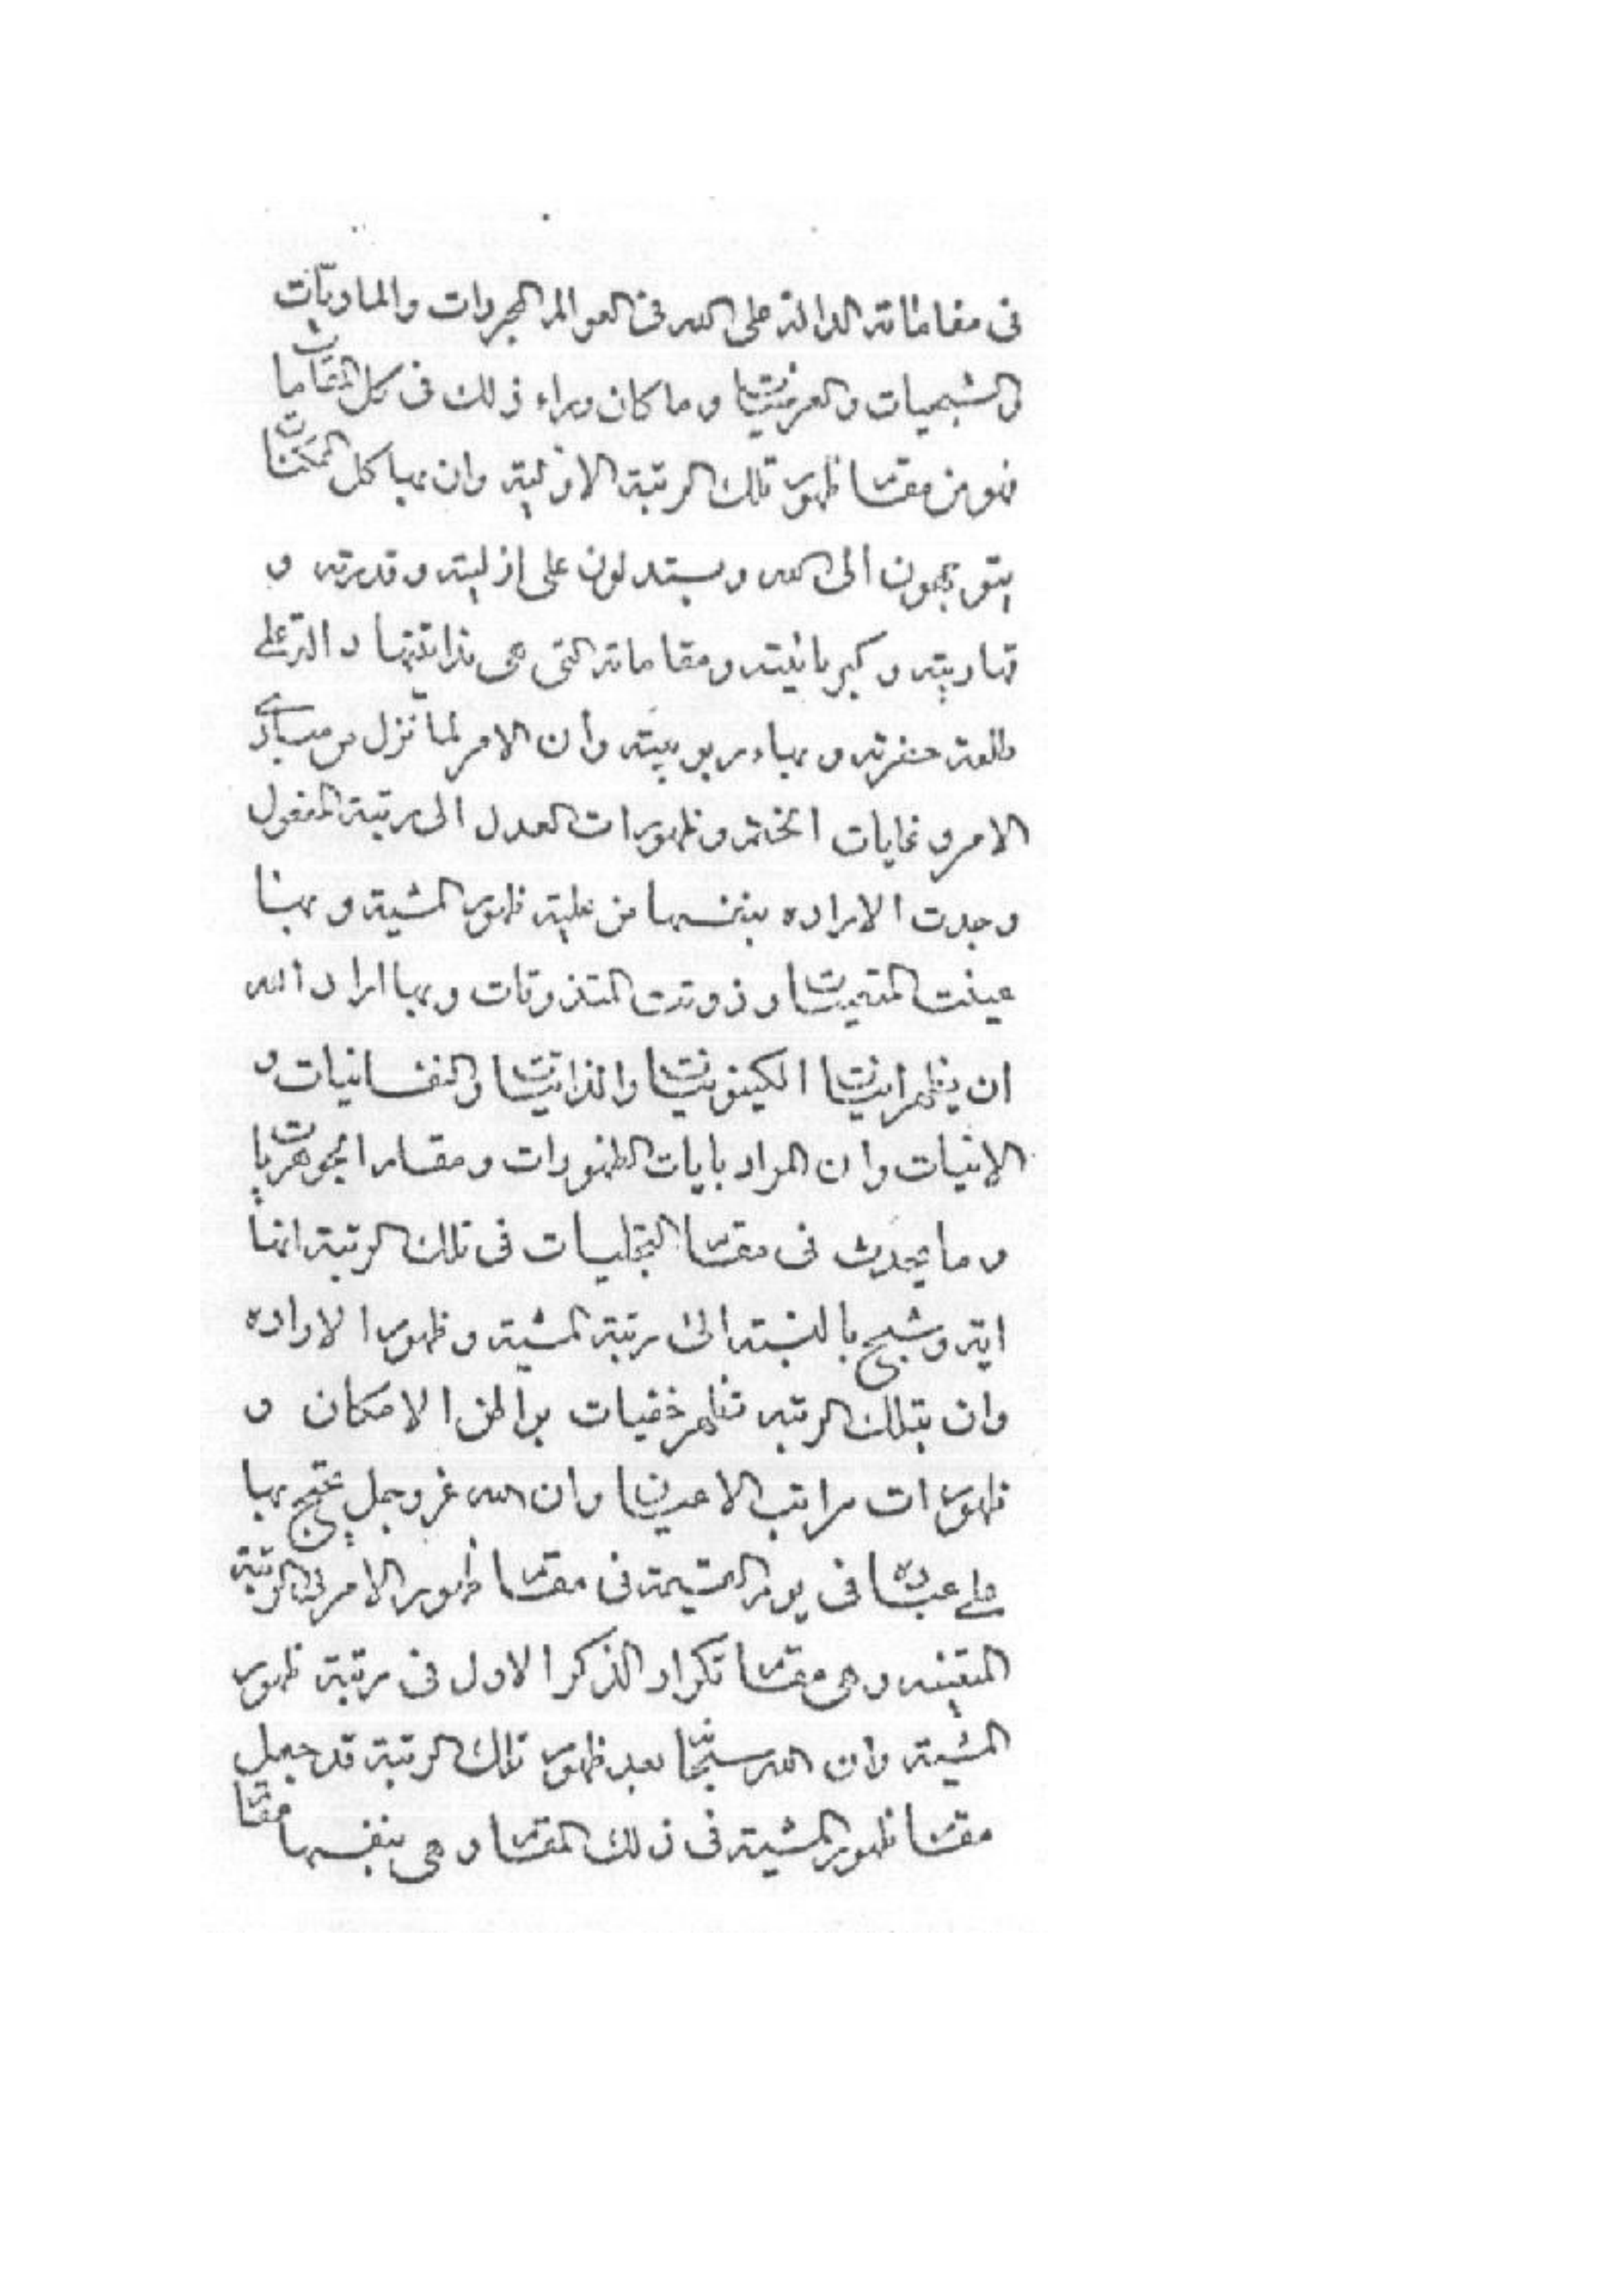 فی مقاماته الدالة علی الله فی العوالم المجردات والمادیات
والشبحیات والعرضیات وما کان وراء ذلک فی کل المقامات
فهو من مقام ظهور تلک الرتبة الازلیة وان بها کل الممکنات
یتوجهون الی الله ویستدلون علی ازلیته وقدرته و
قهاریته وکبریائیته ومقاماته التی هی بذاتیتها دالة علی
طلعة حضرته وبهاء ربوبیته وان الامر لما نزل من مبادی
الامر وغایات الختم وظهورات العدل الی رتبة المفعول
وجدت الاراده بنفسها من علیة ظهور المشیة وبها
عینت المتعینات وذوتت المتذوتات وبها اراد الله
ان یظهر انیات الکینونیات والذاتیات والنفسانیات و
الانیات وان المراد بایات الظهورات ومقام الجوهریات
وما یحدث فی مقام التجلیات فی تلک الرتبة انها
ایة وشبح بالنسبة الی رتبة المشیة وظهور الاراده
وان بتلک الرتبه تظهر خفیات بواطن الامکان و
ظهورات مراتب الاعیان وان الله عز وجل یحتج بها
علی عباده فی یوم القیمة فی مقام ظهور الامر فی الرتبة
المتعینه وهی مقام تکرار الذکر الاول فی رتبة ظهور
المشیة وان الله سبحانه بعد ظهور تلک الرتبة قد جعل
مقام ظهور المشیة فی ذلک المقام وهی بنفسها مقام